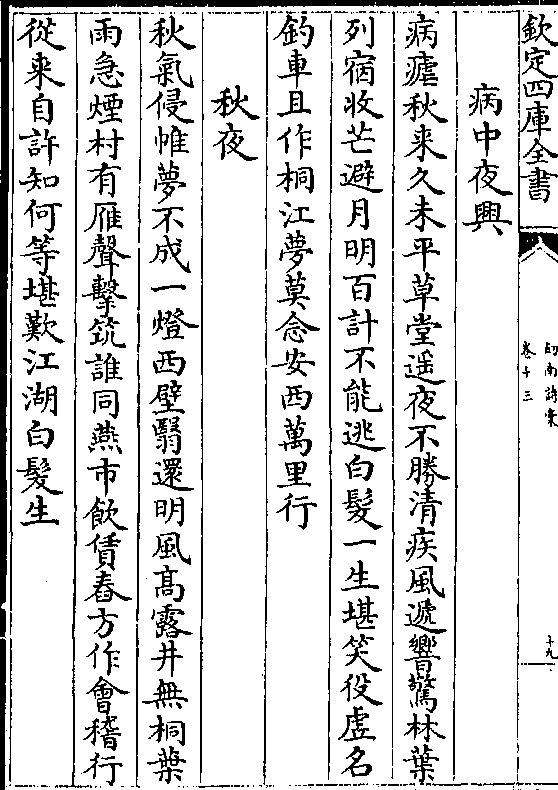 欽定四庫全書
劎南詩稾
卷十三
十九
病中夜興
病瘧秋来久未平草堂遥夜不勝清疾風遞響驚林葉
列宿收芒避月明百計不能逃白髮一生堪笑役虛名
釣車且作桐江夢莫念安西萬里行
秋夜
秋氣侵帷夢不成一燈西壁翳還明風髙露井無桐葉
雨急煙村有雁聲擊筑誰同燕市飲賃舂方作會稽行
從来自許知何等堪歎江湖白髮生